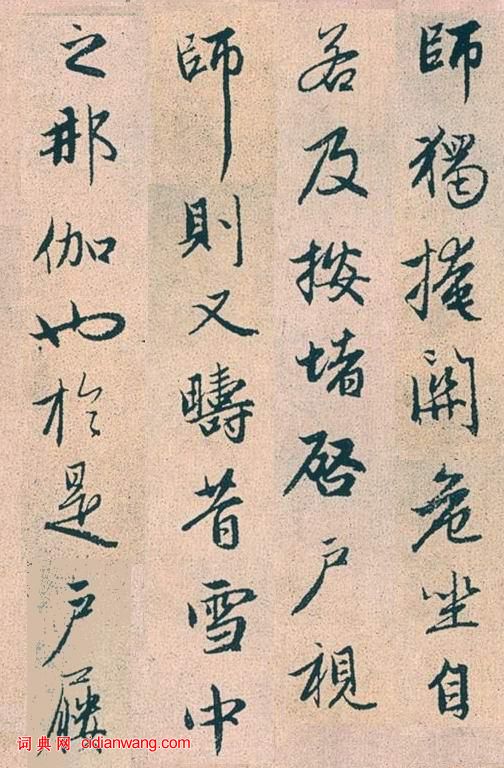 師獨掩關危坐自
若及按堵啓户視
師則又疇昔雪中
之那伽也於是户屨
词典网 cidianwang.com